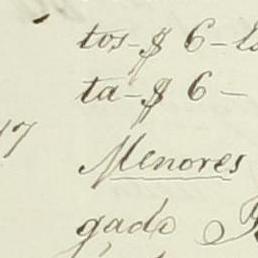 tos-$ 6-
ta-$ 6-
17
Menores
gado